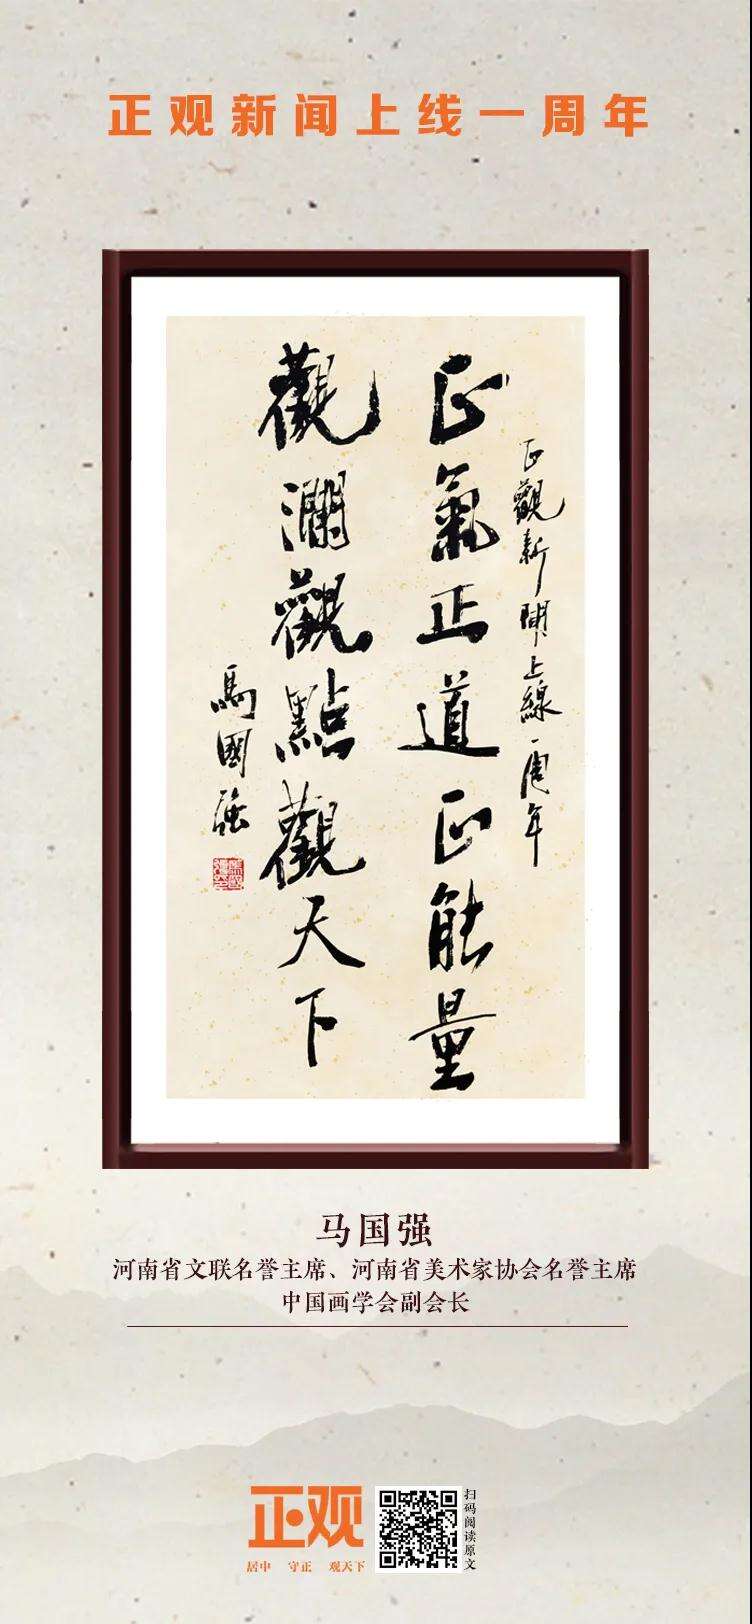 正观新闻上线一周年
正觀新聞上線一周年
正氣正道正能量
觀瀾觀點觀天下
馬國強
马国强
河南省文联名誉主席、河南省美术家协会名誉主席
中国画学会副会长
正观
居中 守正 观天下
扫码阅读原文